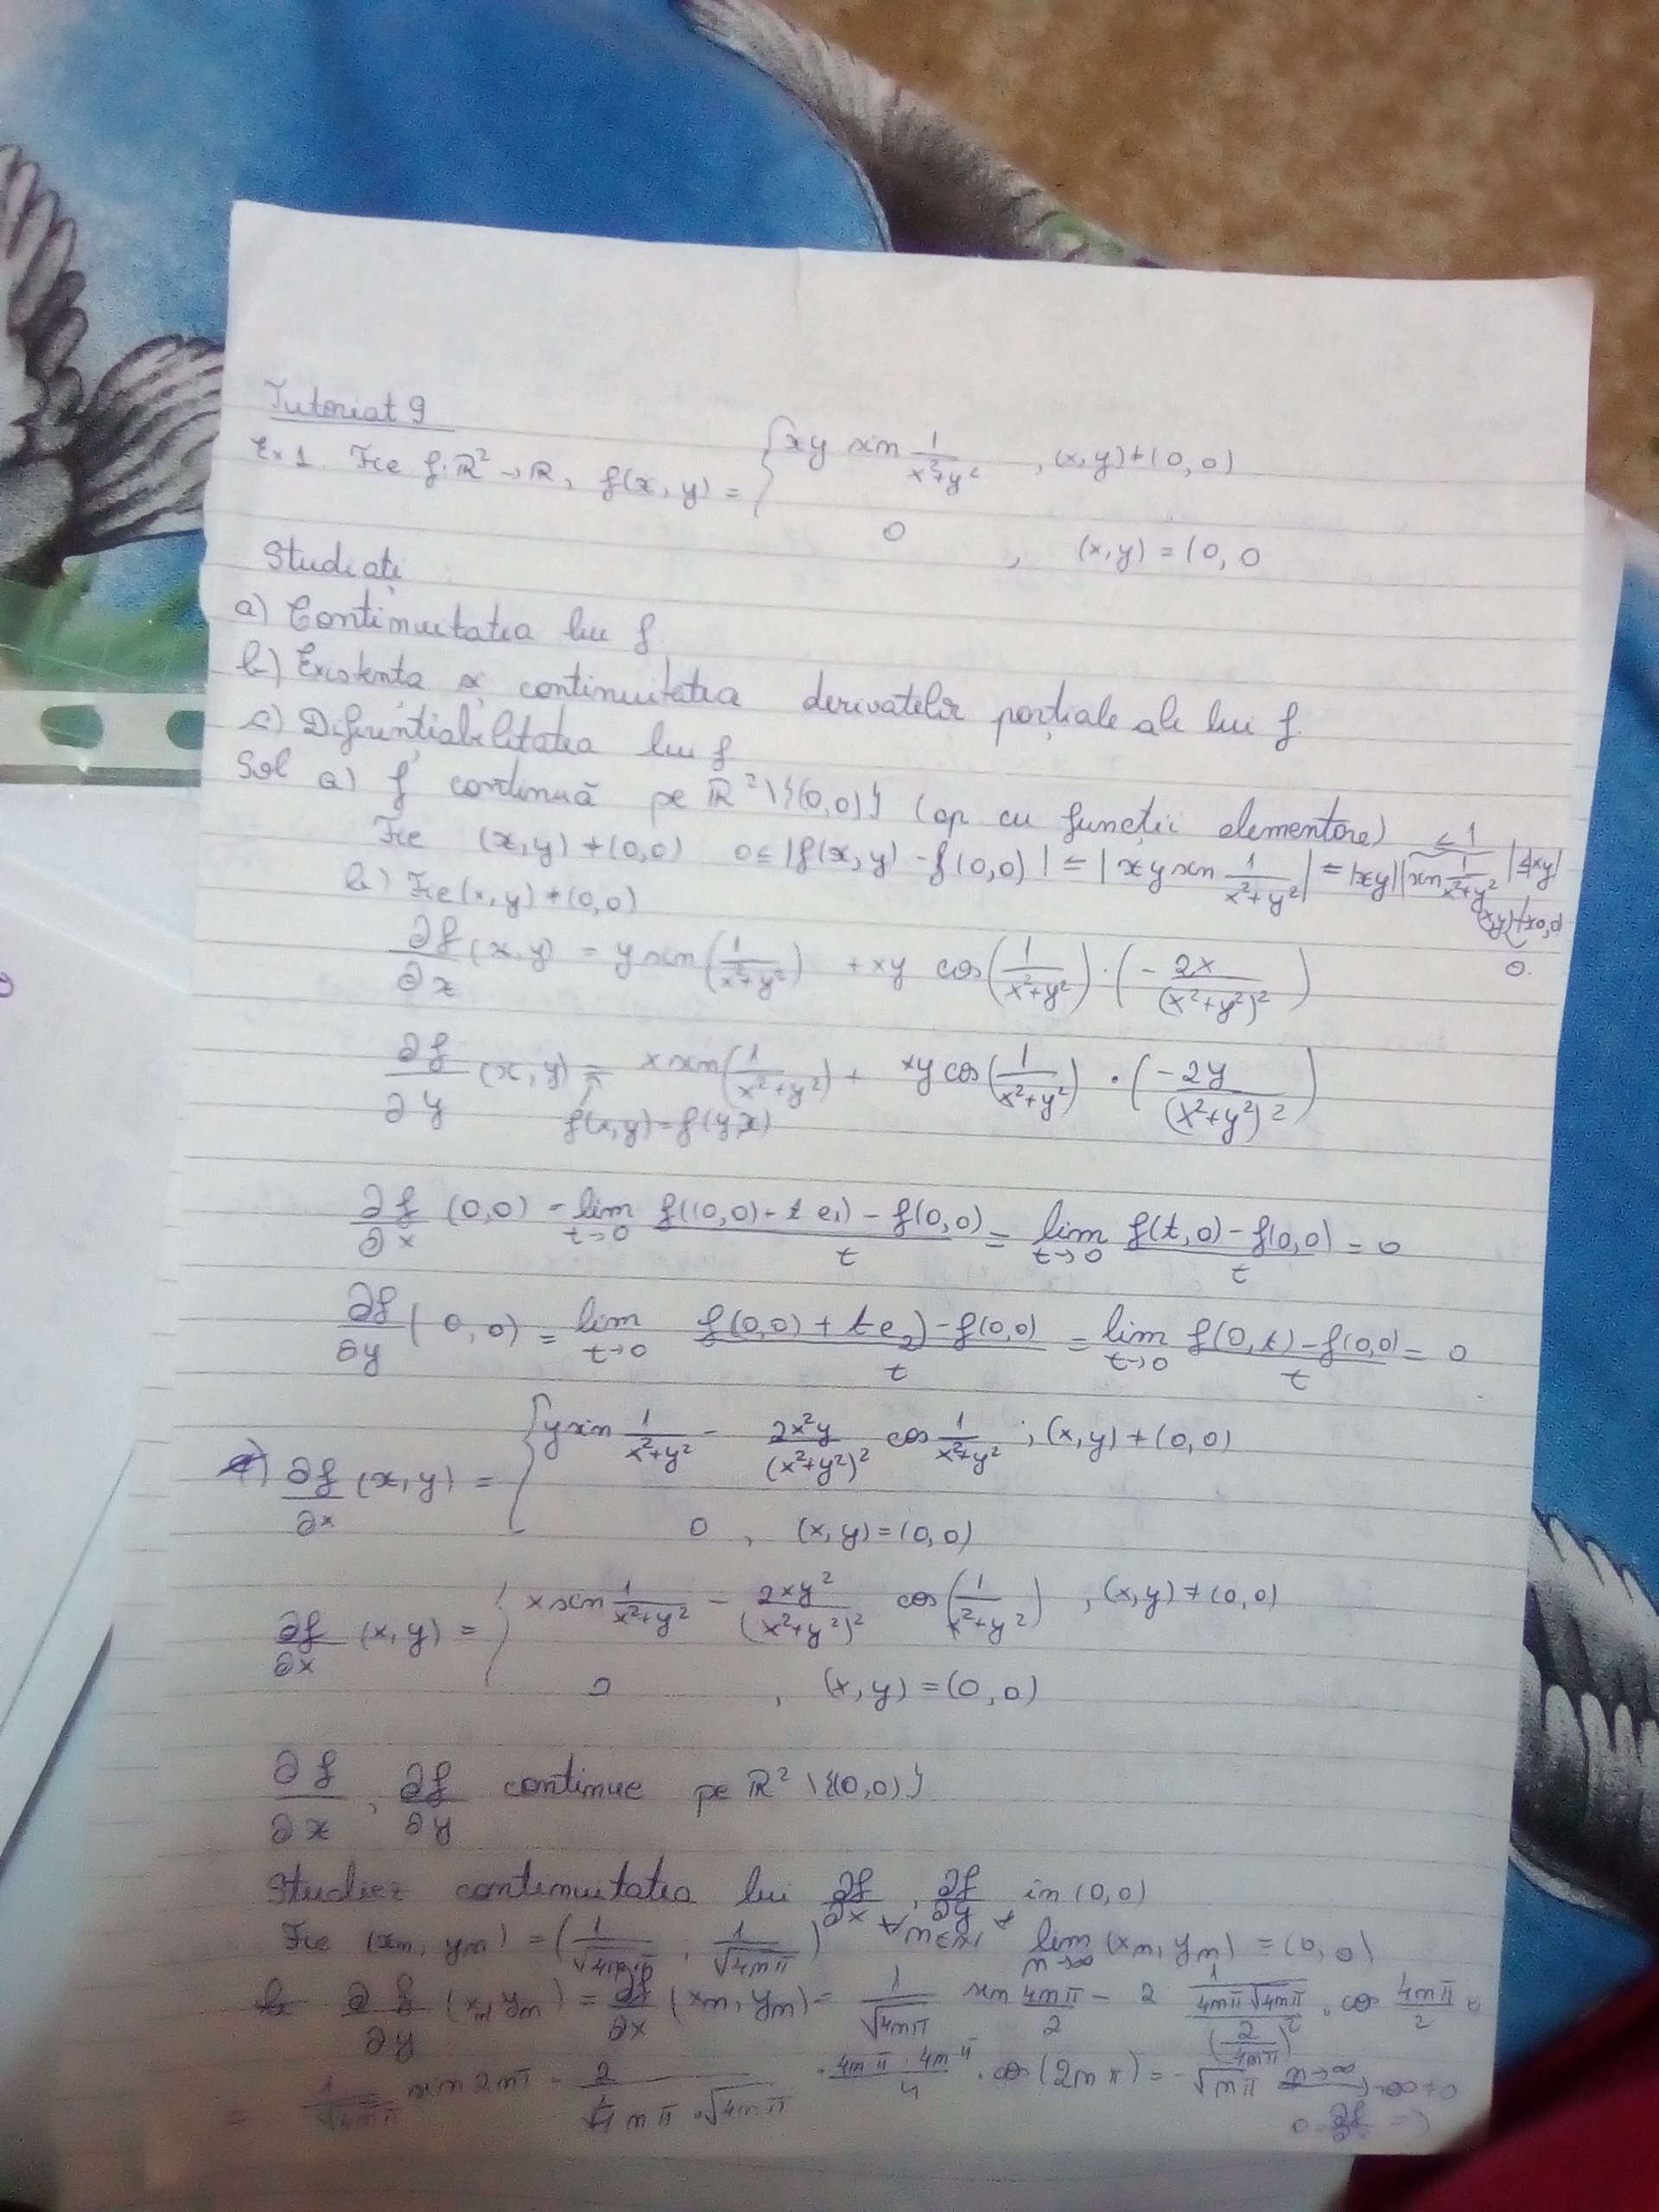 Tutoriat 9
Ex 1. Fie f: ℝ² → ℝ, f(x, y) = { xy sin 1/(x²+y²) , (x, y) ≠ (0, 0)
0 , (x, y) = (0, 0
Studiați
a) Continuitatea lui f
b) Existența și continuitatea derivatelor parțiale ale lui f.
c) Diferențiabilitatea lui f
Sol a) f continuă pe ℝ² \ {(0,0)} (op cu funcții elementare)
Fie (x, y) ≠ (0,0) 0 ≤ |f(x, y) - f(0,0)| = |xy sin 1/(x²+y²)| = |xy| |sin 1/(x²+y²)| ≤ |xy|
≤ 1
b) Fie (x, y) ≠ (0,0)
0.
∂f/∂x (x, y) = y sin(1/(x²+y²)) + xy cos(1/(x²+y²)) · (- 2x/(x²+y²)²)
∂f/∂y (x, y) = x sin(1/(x²+y²)) + xy cos(1/(x²+y²)) · (-2y/(x²+y²)²)
f(x,y)=f(y,x)
∂f/∂x (0,0) = lim t→0 (f((0,0) + t e₁) - f(0,0))/t = lim t→0 (f(t,0) - f(0,0))/t = 0
∂f/∂y (0,0) = lim t→0 (f(0,0) + t e₂) - f(0,0))/t = lim t→0 (f(0,t) - f(0,0))/t = 0
∂f/∂x (x, y) = { y sin 1/(x²+y²) - 2x²y/(x²+y²)² cos 1/(x²+y²) ; (x, y) ≠ (0,0)
0 , (x, y) = (0,0)
∂f/∂x (x, y) = { x sin 1/(x²+y²) - 2xy²/(x²+y²)² cos(1/(x²+y²)) , (x, y) ≠ (0,0)
0 , (x, y) = (0,0)
∂f/∂x , ∂f/∂y continue pe ℝ² \ {(0,0)}
Studiez continuitatea lui ∂f/∂x , ∂f/∂y in (0,0)
Fie (xn, yn) = (1/√4nπ ; 1/√4nπ) ∀ n∈ℕ* lim n→∞ (xn, yn) = (0,0)
∂f/∂y (xn, yn) = ∂f/∂x (xn, yn) = 1/√4nπ sin 4nπ/2 - 2 (1/(4nπ√4nπ))/(2/4nπ)² · cos 4nπ/2 =
= 1/√4nπ sin 2nπ - 2/(4nπ·√4nπ) · (4nπ · 4nπ)/4 · cos(2nπ) = -√nπ n→∞ → -∞ ≠ 0
∂f/∂x =>